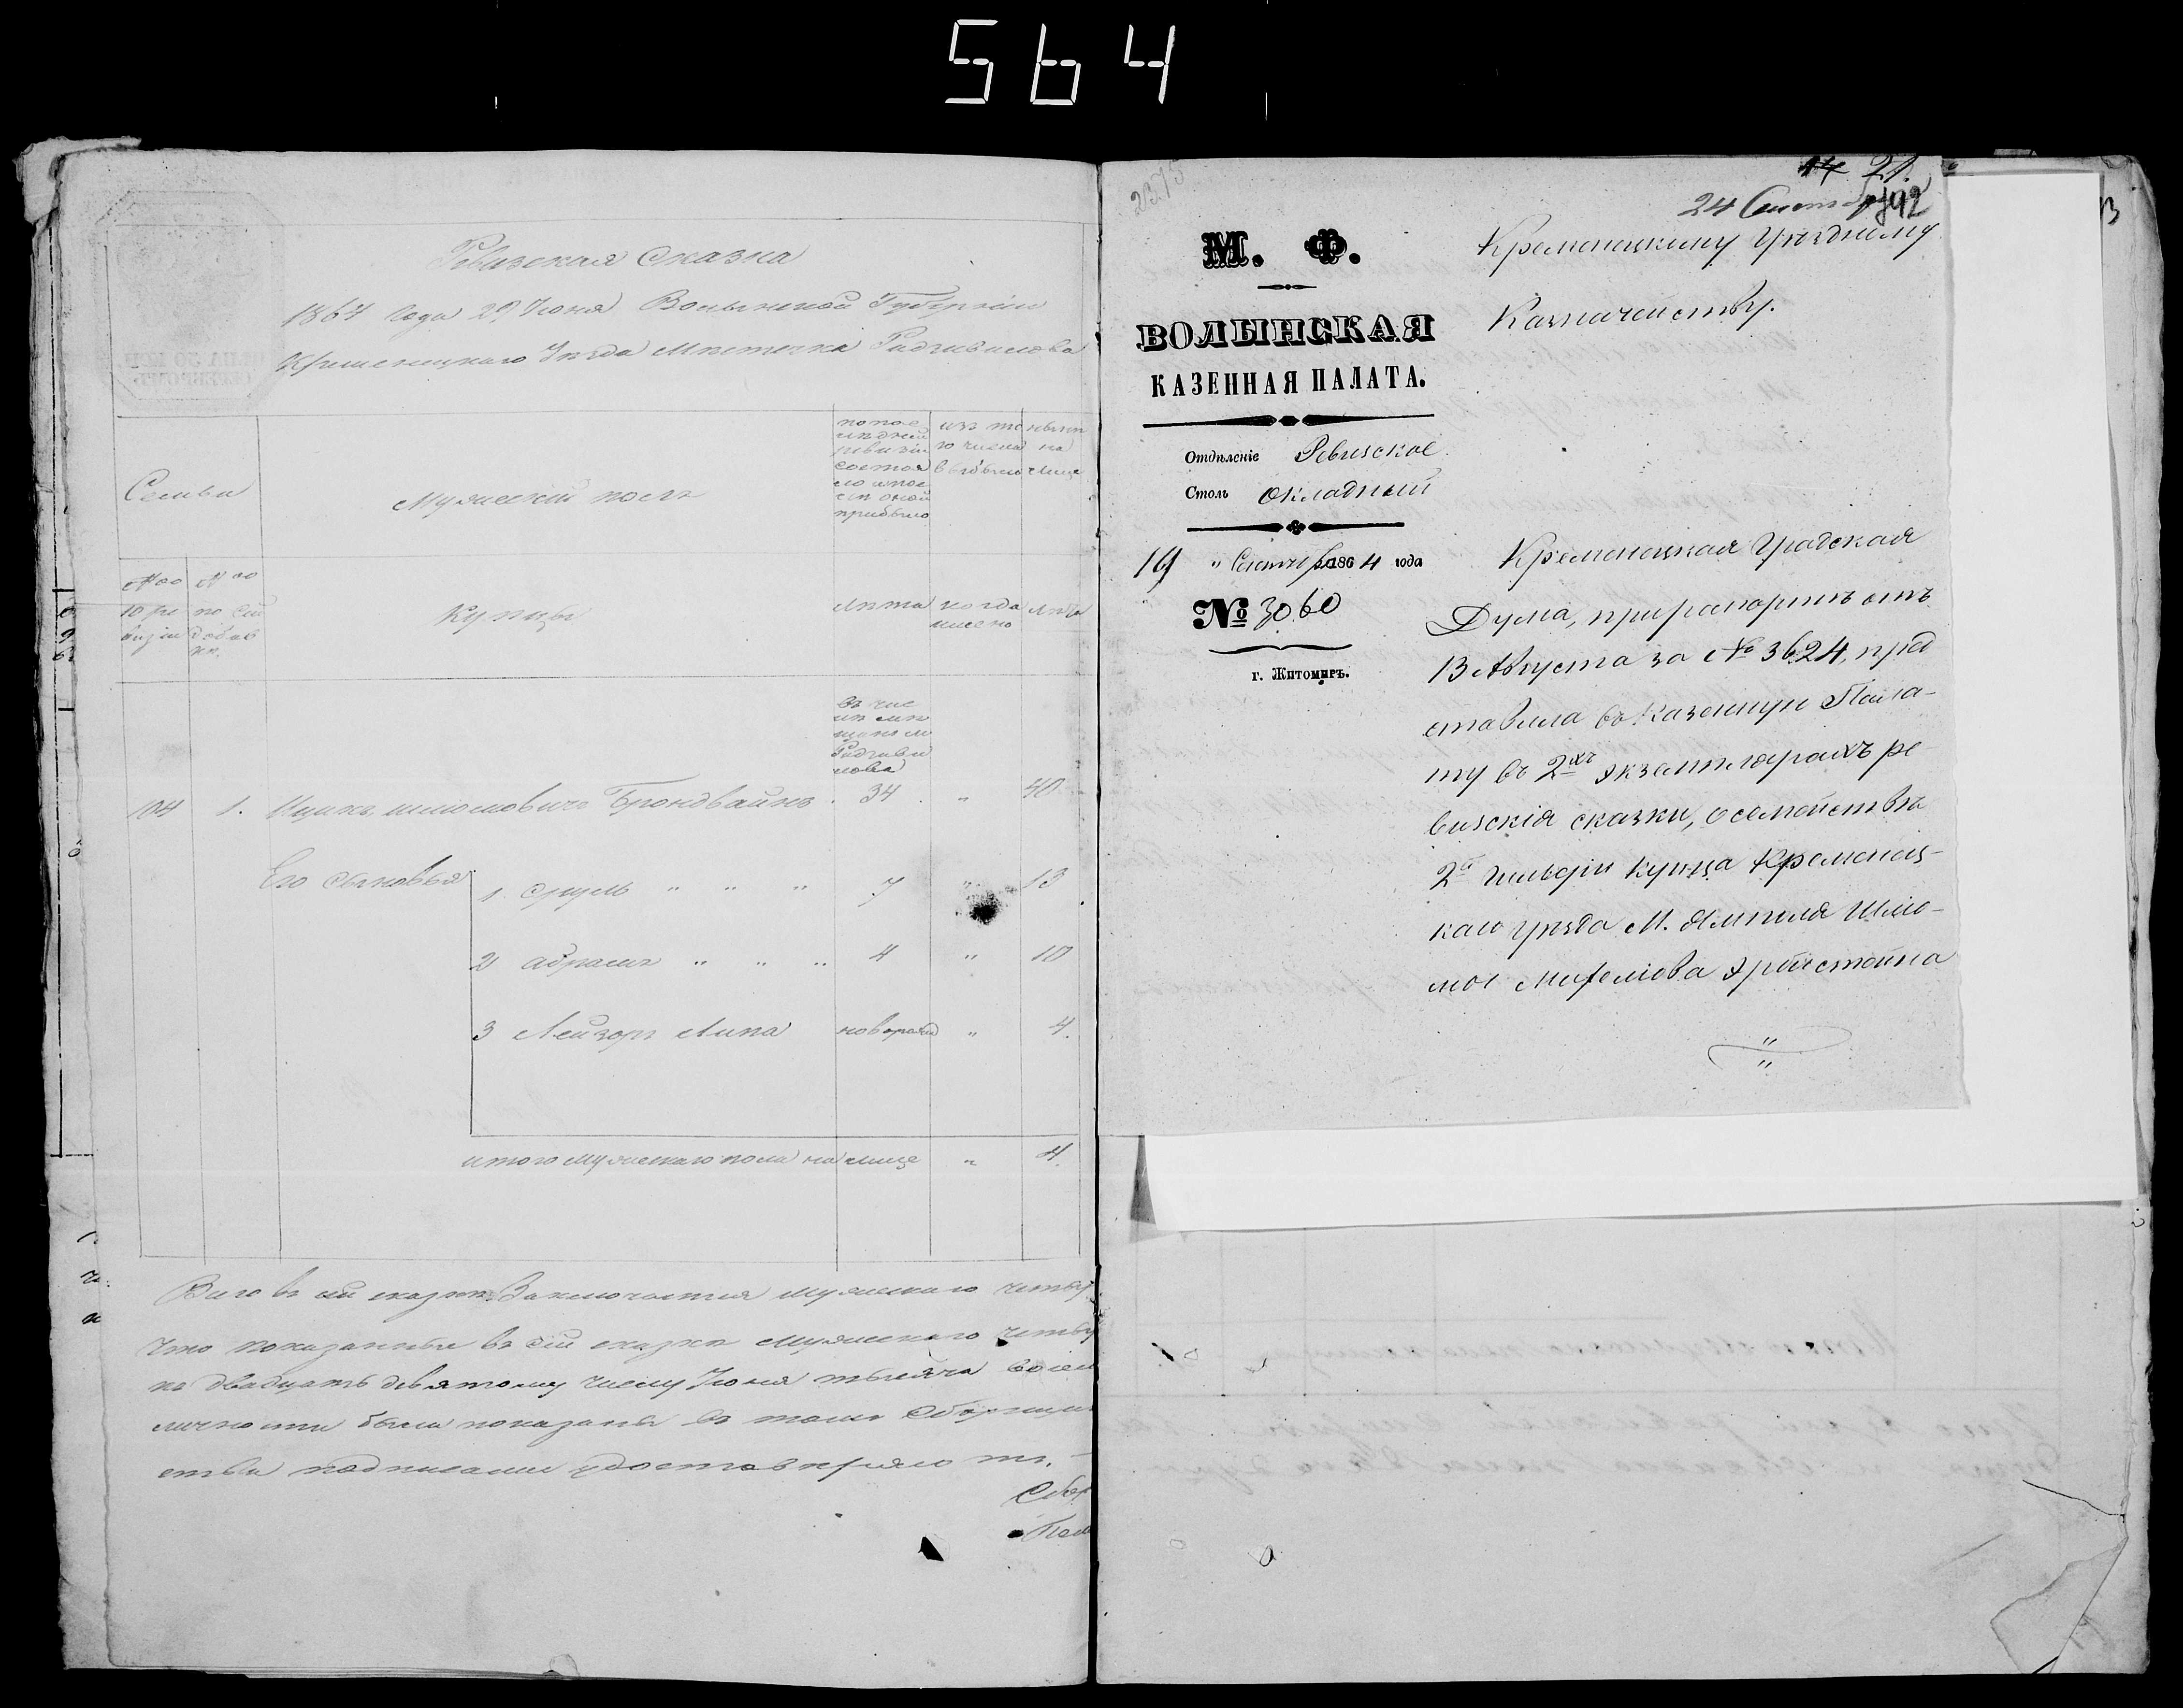 564
Ревизская Сказка
1864 Года 29 Июня Волынской Губерніи
Кременецкаго Уѣзда Мѣстечка Радзивилова
Семьи
Мужескій полъ
по пос
лѣдней
ревизіи
состоя
ло и пос
лѣ оной
прибыло
изъ то
го числа
выбыло
нынѣ
на
лице
№ оо
10 ре
визіи
№ оо
по сей
добав
ки.
Купцы
лѣта
когда
лѣта
въ чис
лѣ мѣ
щанъ м
Радзиви
лова
104 1. Ицикъ Шлиомовичъ Бронвайнъ. 34 " 40
Его сыновья
1 Сруль " " " 7 " 13
2 Абрамъ " " " 4 " 10
3 Лейзоръ Липа новорожд " 4.
итого мужескаго пола на лице " 4.
Всего въ сей сказкѣ Заключается мужескаго четыр
Что показанные въ сей сказкѣ мужескаго четыр
по двадцать девятому числу Іюня тысяча восем
личности были показаны въ томъ
подписами удостовѣряю
2375
14 21.
24 Сентября
192
М. Ф.
ВОЛЫНСКАЯ
КАЗЕННАЯ ПАЛАТА.
Отдѣленіе Ревизское
Столъ Окладный
19 " Сентября 1864 года
№ 3060
г. Житомиръ.
Кременецкому Уѣздному
Казначейству.
Кременецкая Градская
Дума, при рапортѣ отъ
13 Августа за № 3624, пред
ставила въ Казенную Пала-
ту въ 2хъ экземплярахъ ре
визскія сказки, о семействѣ
2й гильдіи купца Кременец-
каго уѣзда М. Ямполя Шлио-
мы